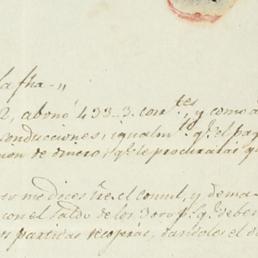 la fha..
2, abonó 433..3. corr.tes, y como a
conducciones, igualm.te q.e el pag
de dinero, q.e le procurarás q
me dices tre. el consul, y dema
con el saldo de los 3 oro p.s q.e deber
partidas recojerás, dandoles el d